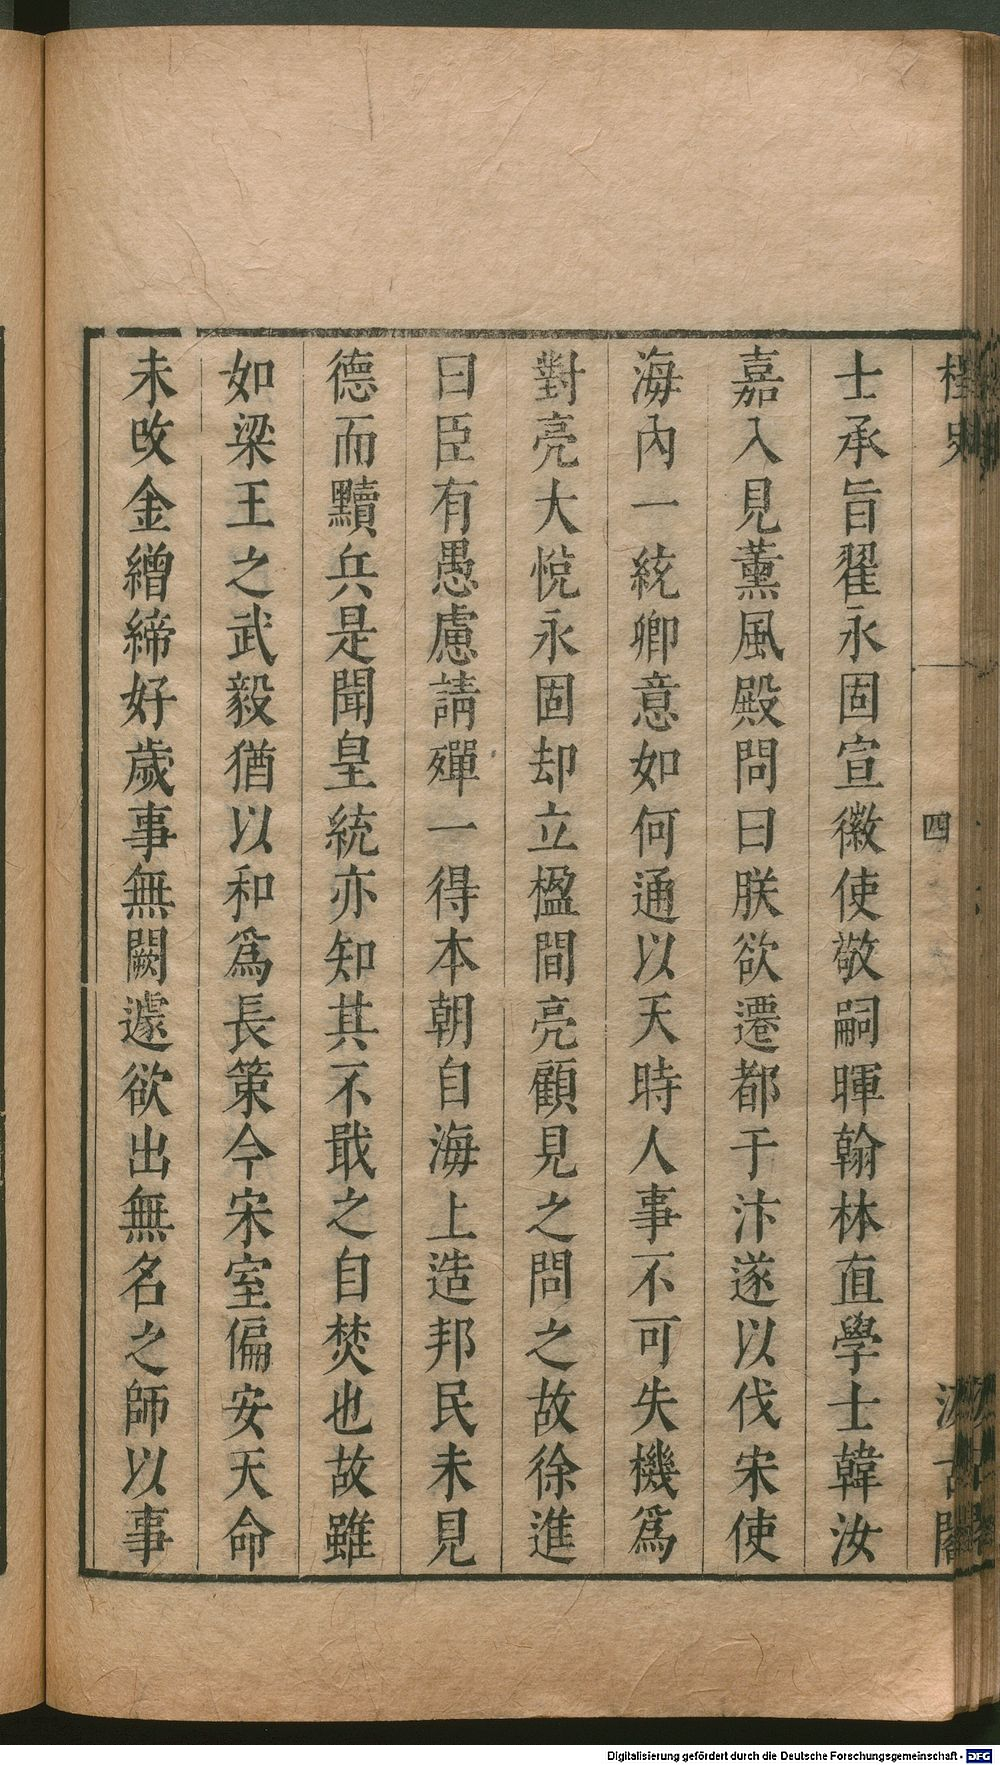 桯史
四
汲古閣
士承旨翟永固宣徽使敬嗣暉翰林直學士韓汝
嘉入見薰風殿問曰朕欲遷都于汴遂以伐宋使
海內一統卿意如何通以天時人事不可失機爲
對亮大悅永固却立楹間亮顧見之問之故徐進
曰臣有愚慮請殫一得本朝自海上造邦民未見
德而黷兵是聞皇統亦知其不戢之自焚也故雖
如梁王之武毅猶以和爲長策今宋室偏安天命
未改金繒締好歲事無闕遽欲出無名之師以事
Digitalisierung gefördert durch die Deutsche Forschungsgemeinschaft - DFG